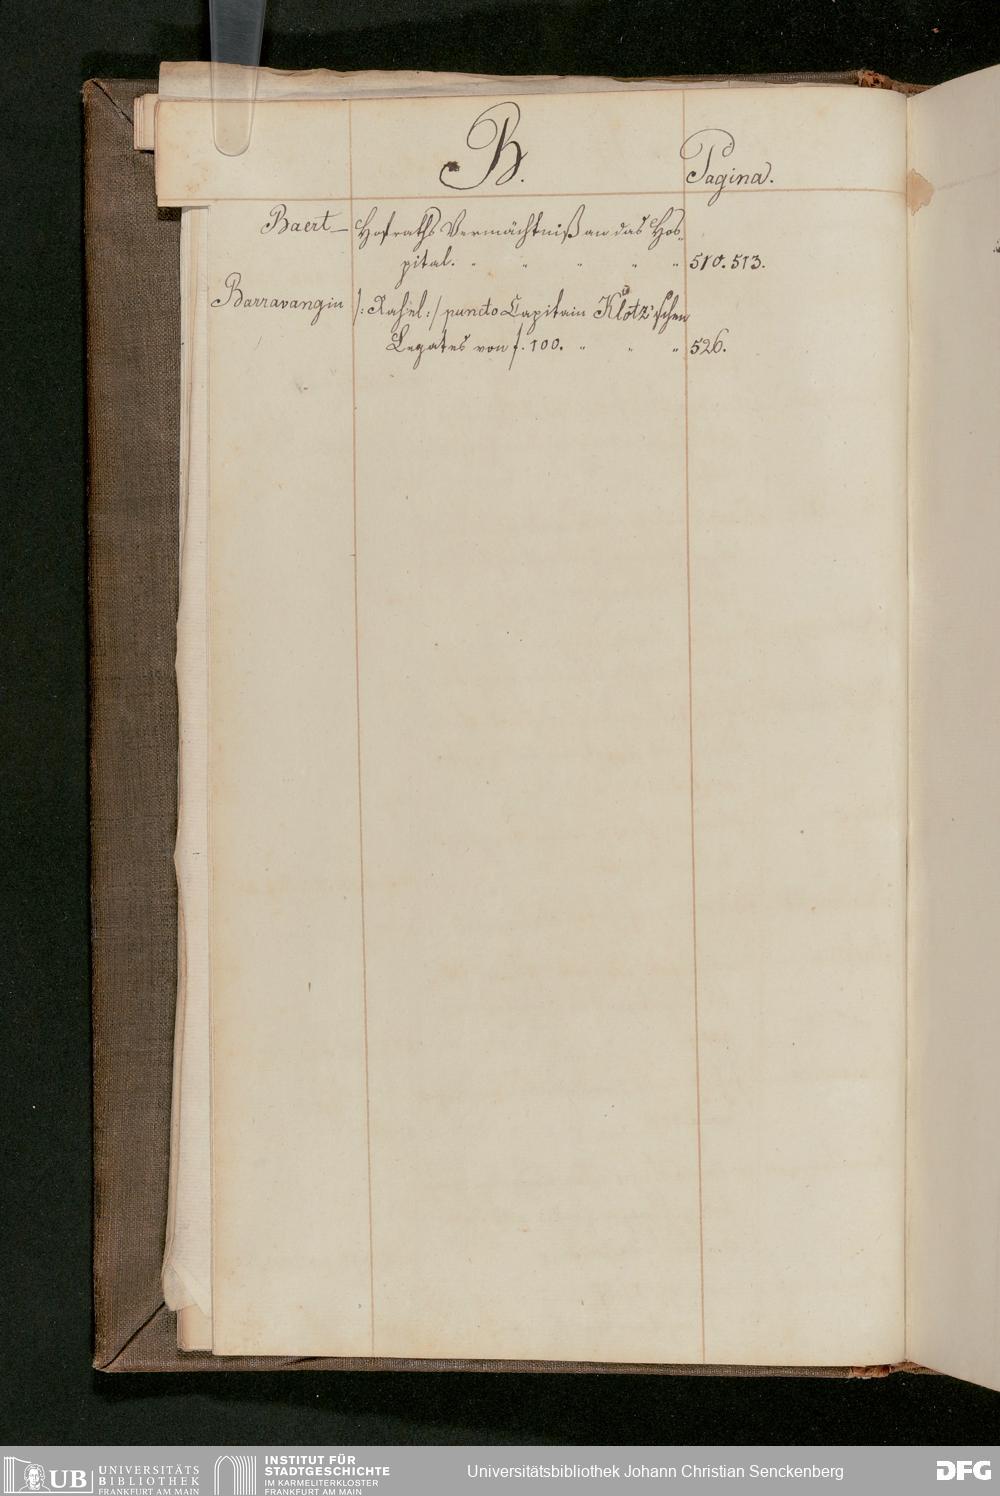 B.
Pagina.
Baert — Hofraths Vermächtniß an das Hos-
pital. " " " " " 510. 513.
Barravangin /: Rahel :/ puncto Capitain Klotz'schen
Legates von f. 100. " " " 526.
UB UNIVERSITÄTS
BIBLIOTHEK
FRANKFURT AM MAIN
INSTITUT FÜR
STADTGESCHICHTE
IM KARMELITERKLOSTER
FRANKFURT AM MAIN
Universitätsbibliothek Johann Christian Senckenberg
DFG